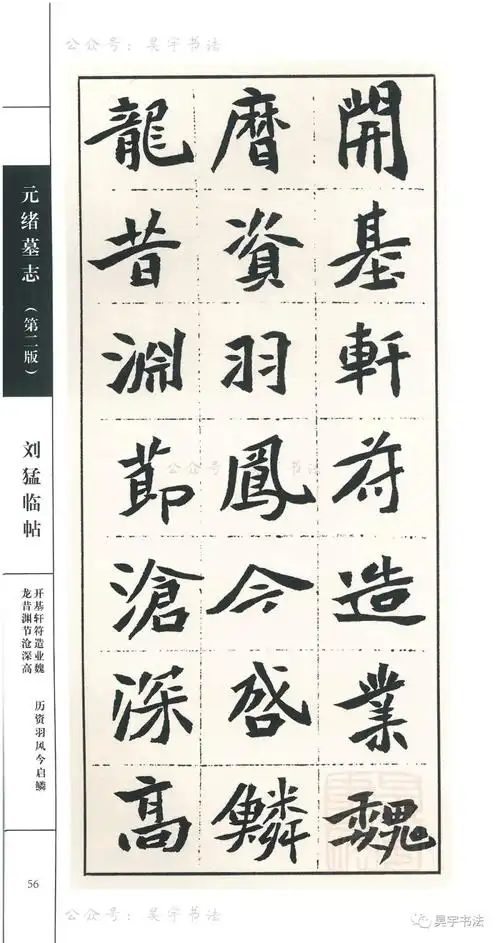 公众号：昊宇书法
開基軒苻造業魏
曆資羽鳳今启鱗
龍昔淵莭滄深高
元绪墓志（第二版）
刘猛临帖
开基轩符造业魏
历资羽风今启鳞
龙昔渊节沧深高
56
公众号 书法
公众号：昊宇书法
昊宇书法